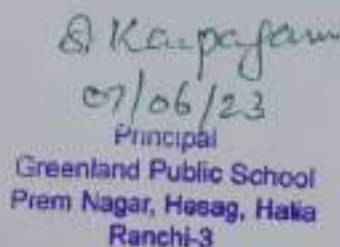 S Karpagam
07/06/23
Principal
Greenland Public School
Prem Nagar, Hesag, Hatia
Ranchi-3